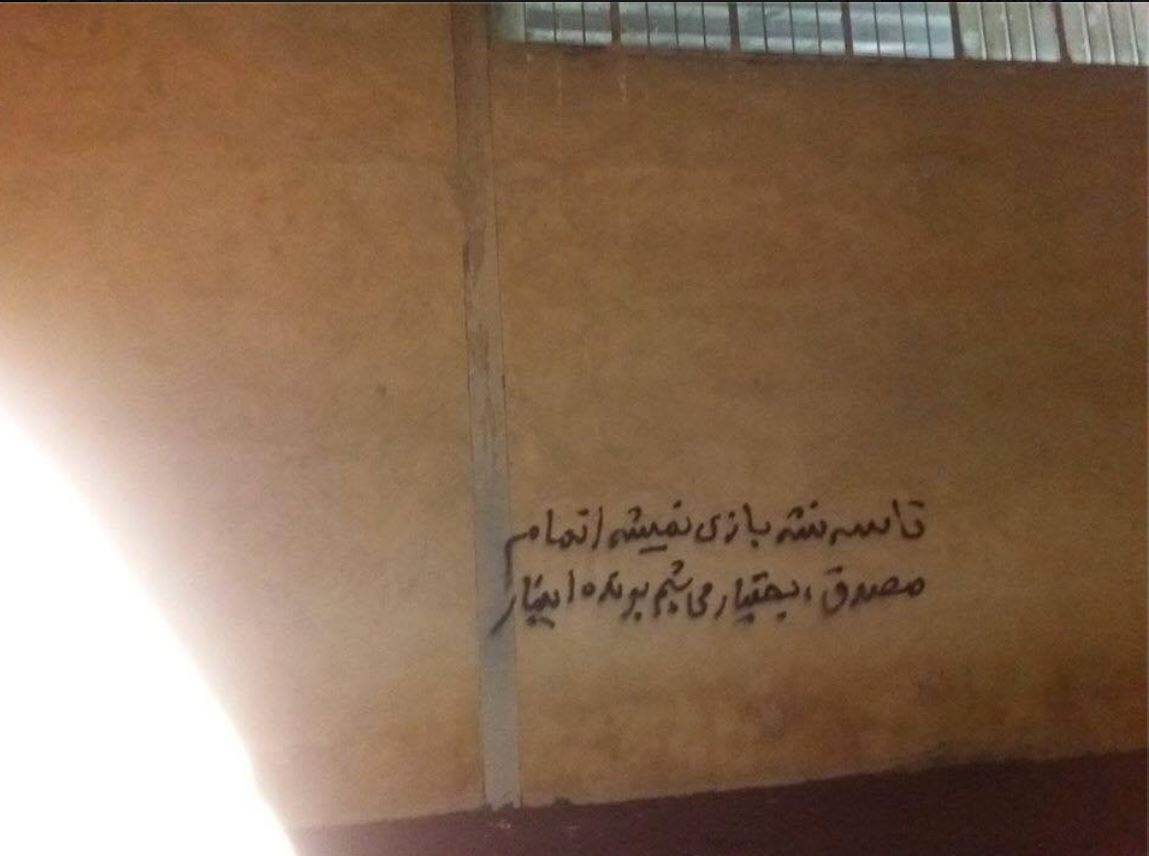 تا سه نشه بازی نمیشه اتمام
مصدق، بختیار می‌شیم برنده اینبار